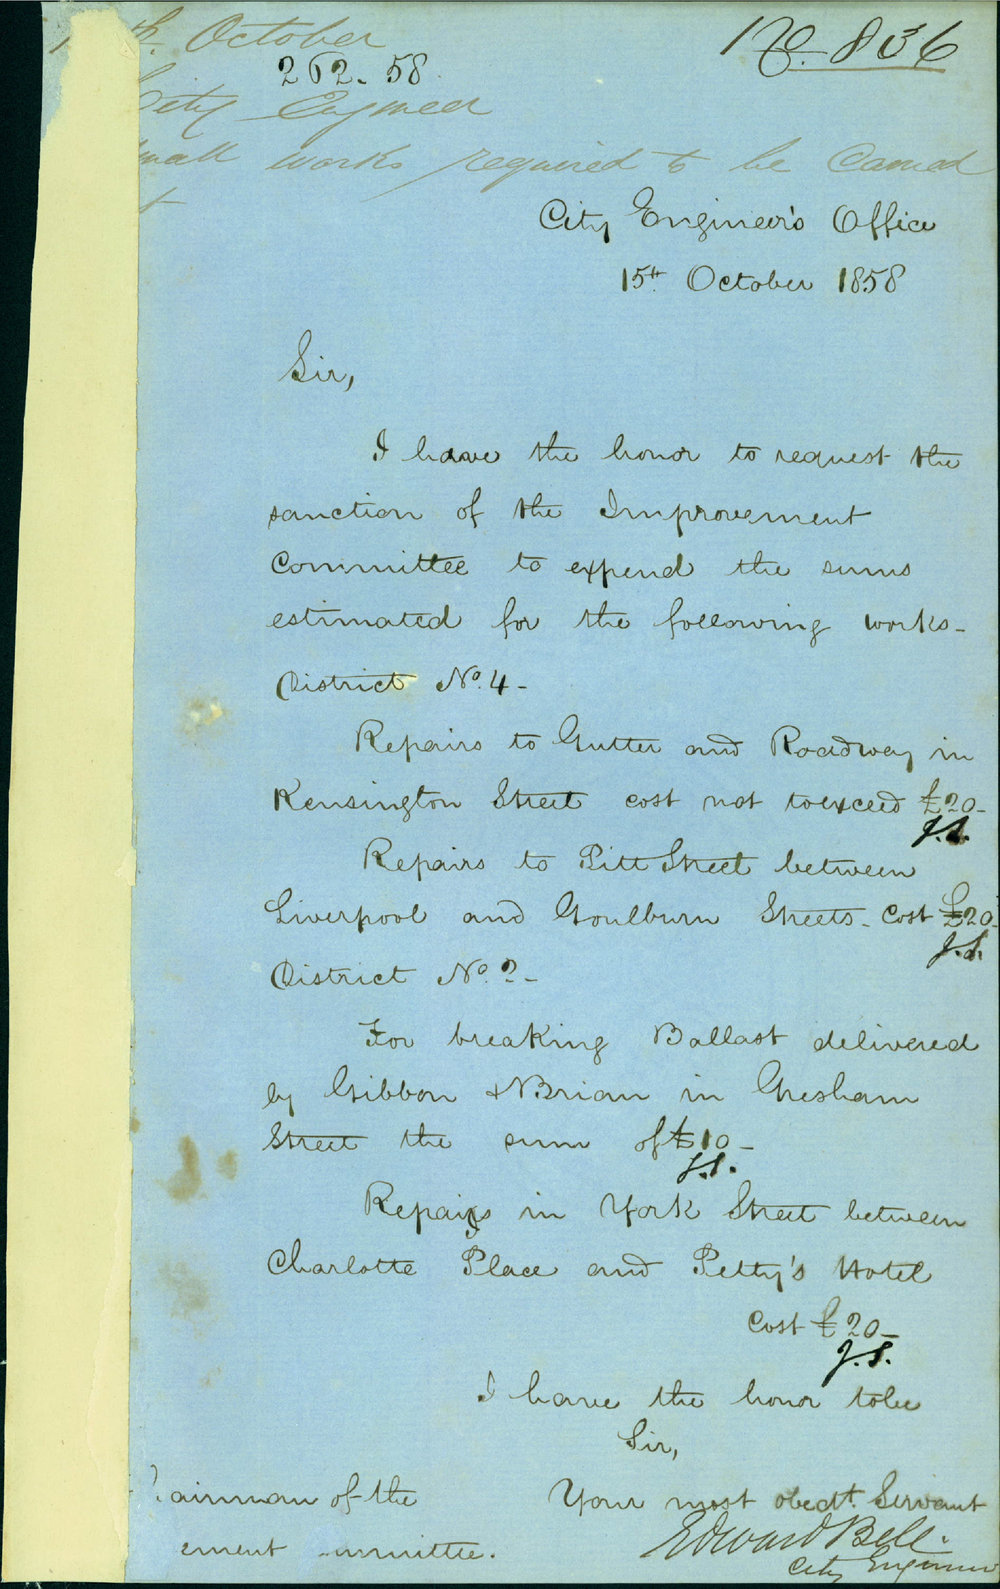 October
No. 836
262-58
City Engineer
small works required to be Carried
City Engineer's Office
15th October 1858
Sir,
I have the honor to request the
sanction of the Improvement
Committee to expend the sums
estimated for the following works-
District No. 4-
Repairs to Gutter and Roadway in
Kensington Street cost not to exceed £20-
J.S.
Repairs to Pitt Street between
Liverpool and Goulburn Streets. Cost £20-
J.S.
District No. 2-
For breaking Ballast delivered
by Gibbon & NBrian in Gresham
Street the sum of £10-
J.S.
Repairs in York Street between
Charlotte Place and Petty's Hotel
Cost £20-
J.S.
I have the honor to be
Sir,
airman of the
Your most obedt. Servant
ement mmittee.
Edward Bell.
City Engineer